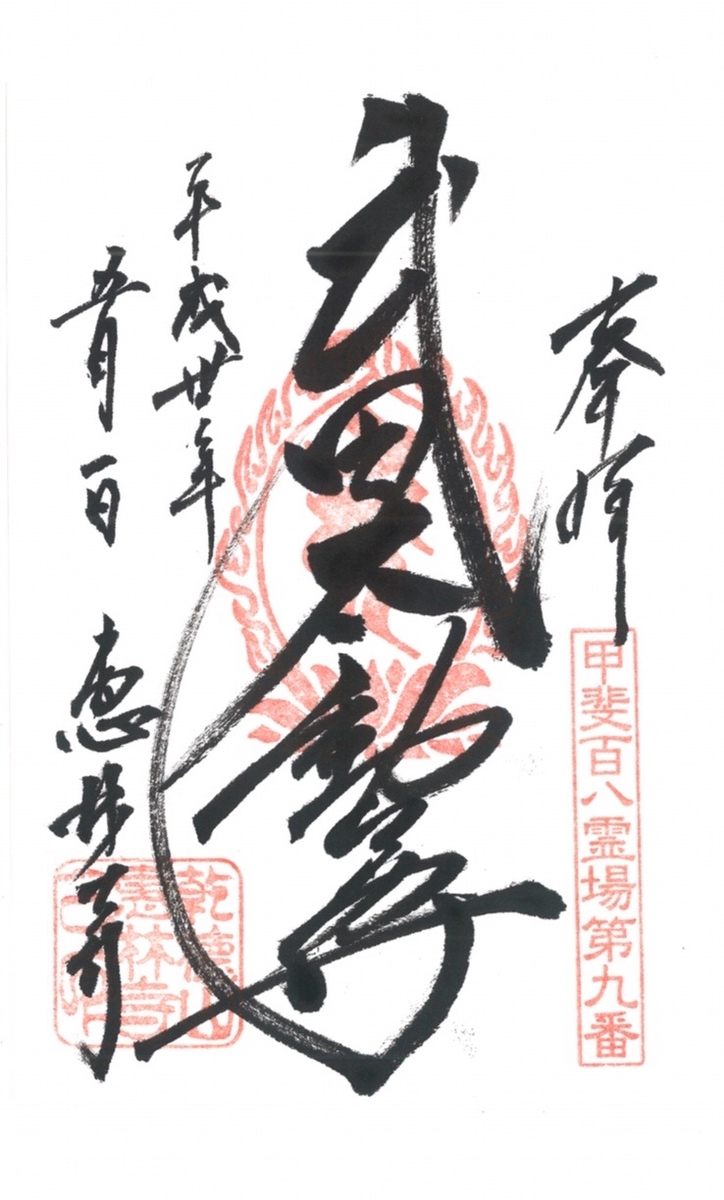 奉拝
甲斐百八霊場第九番
武田不動尊
平成廿年
五月一日
恵林寺
乾徳山
恵林寺